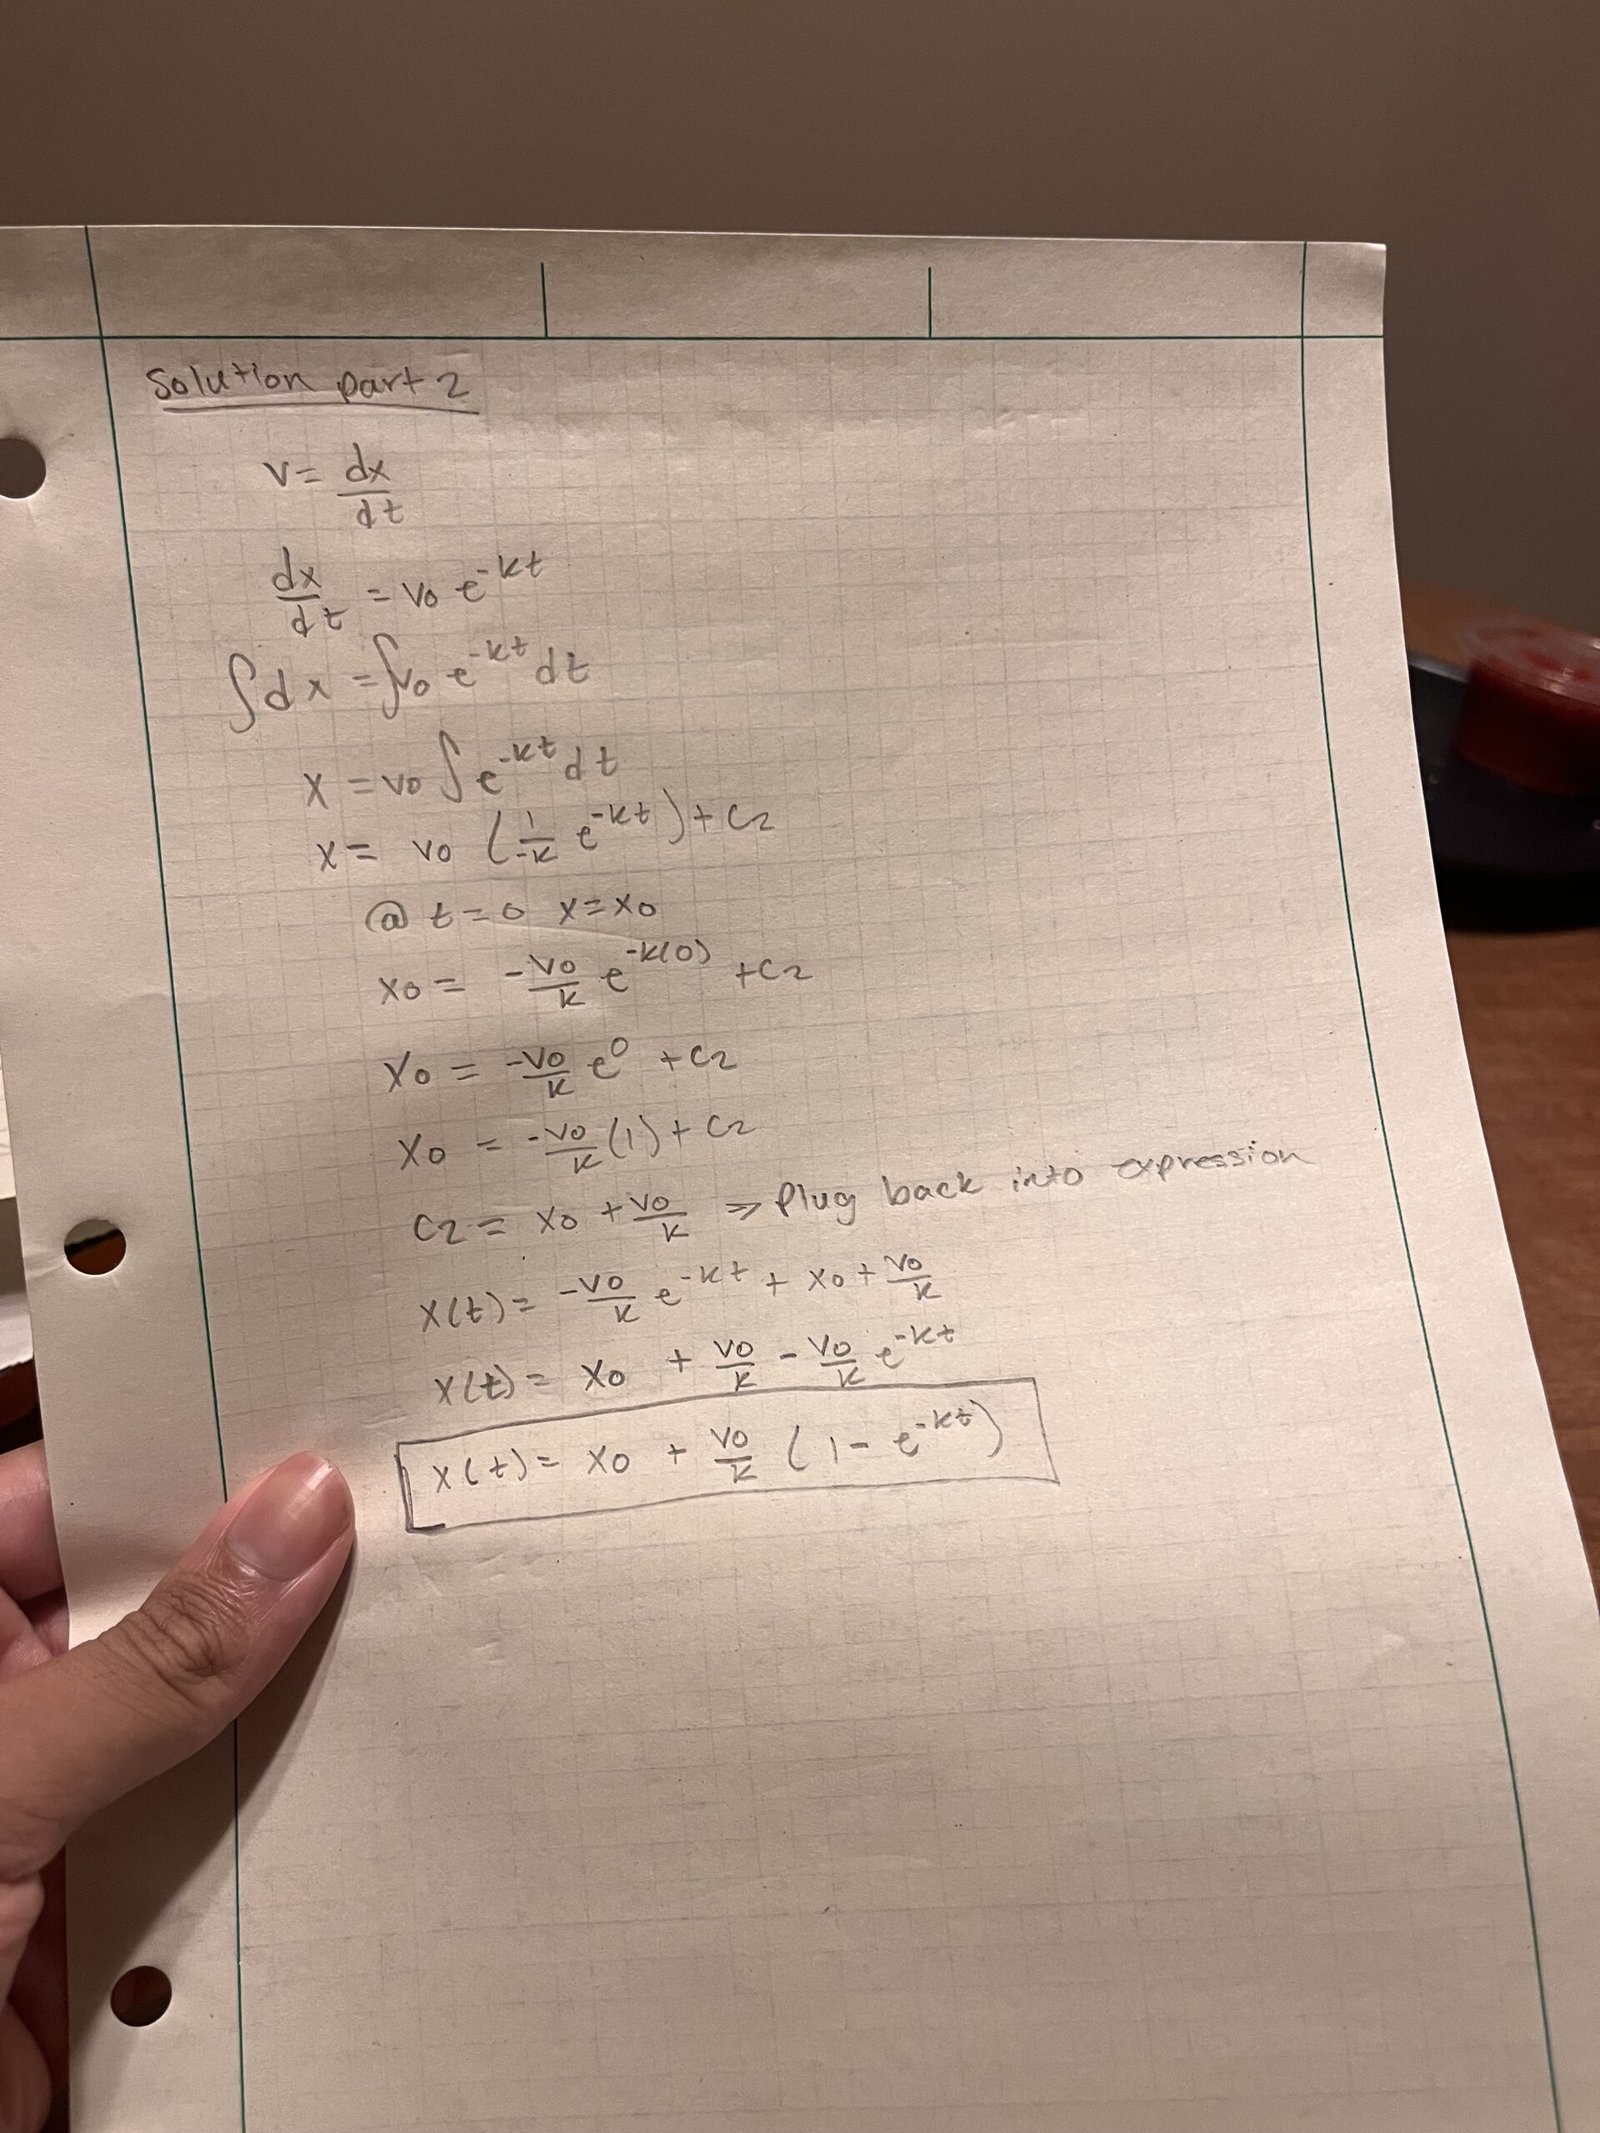 Solution part 2
v = dx/dt
dx/dt = v0 e^-kt
∫dx = ∫v0 e^-kt dt
x = v0 ∫e^-kt dt
x = v0 (1/-k e^-kt) + C2
@ t = 0 x = x0
x0 = -v0/k e^-k(0) + C2
x0 = -v0/k e^0 + C2
x0 = -v0/k (1) + C2
C2 = x0 + v0/k ⇒ Plug back into expression
x(t) = -v0/k e^-kt + x0 + v0/k
x(t) = x0 + v0/k - v0/k e^-kt
x(t) = x0 + v0/k (1 - e^-kt)